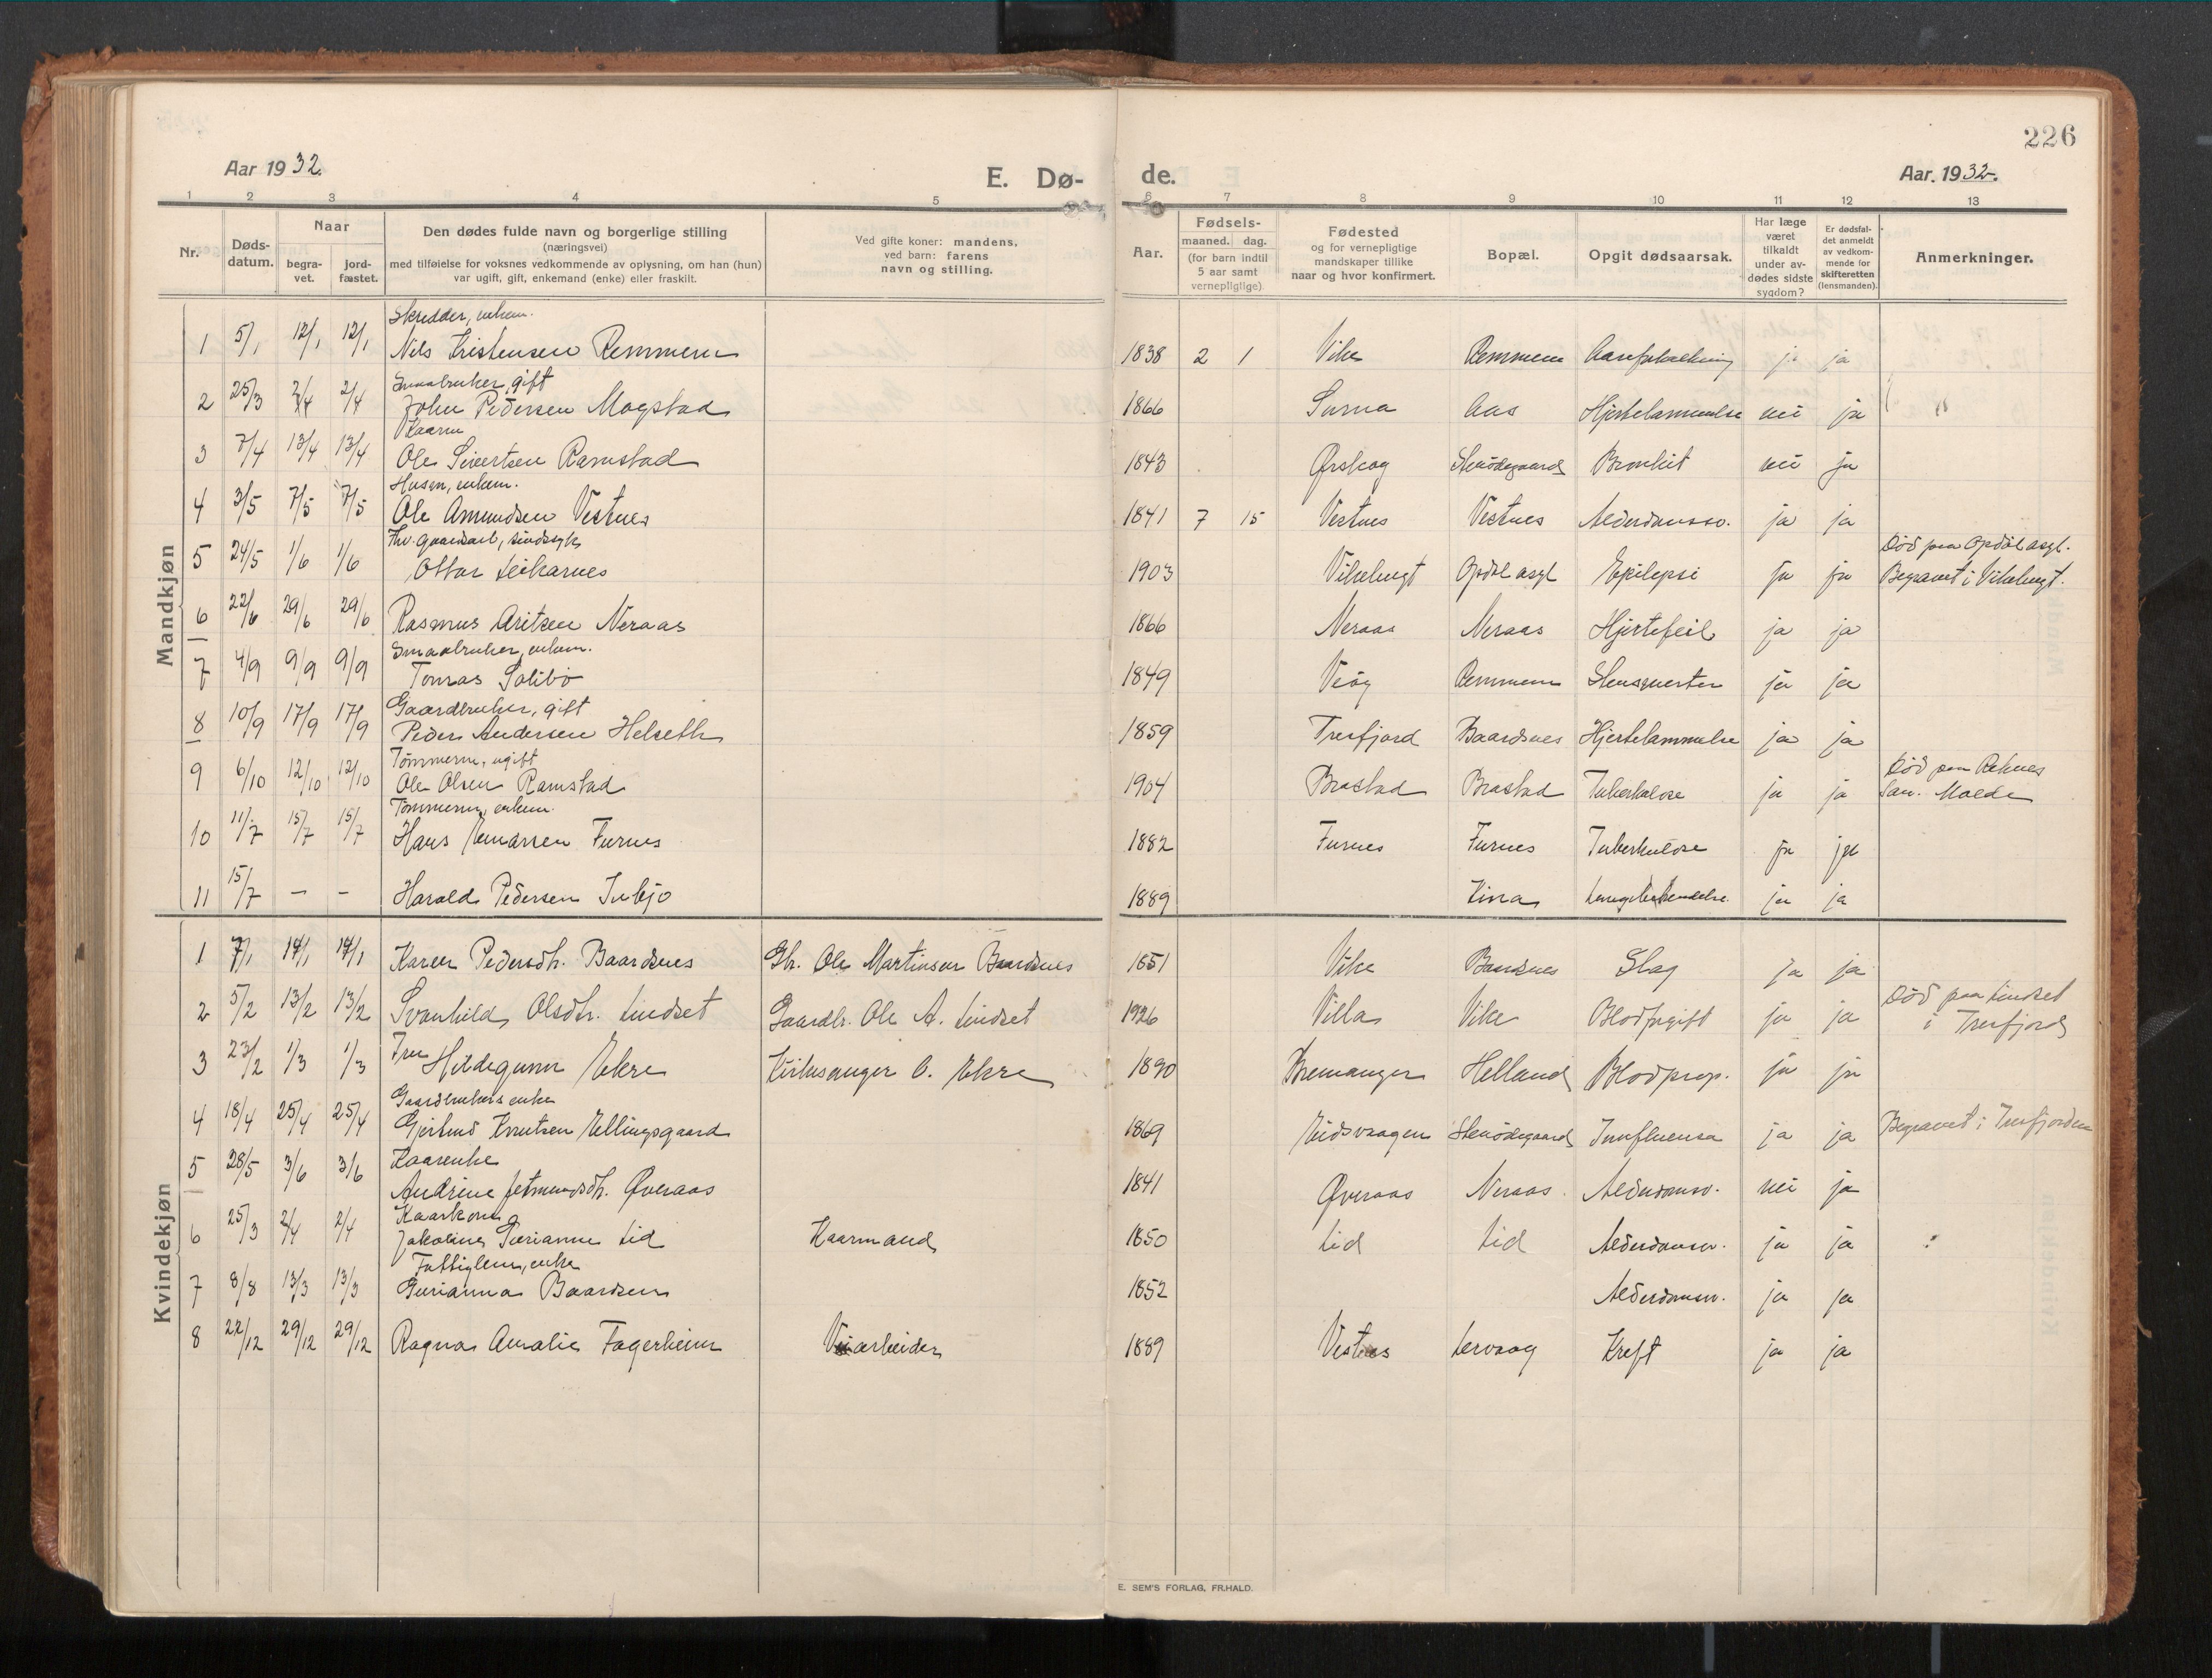 226
Aar 1932.
E. Dø-
de.
Aar. 1932.
1 2 3 4 5 6 7 8 9 10 11 12 13
Nr.
Døds-datum.
Naar
begra-vet.
jord-fæstet.
Den dødes fulde navn og borgerlige stilling
(næringsvei)
med tilføielse for voksnes vedkommende av oplysning, om han (hun)
var ugift, gift, enkemand (enke) eller fraskilt.
Ved gifte koner: mandens,
ved barn: farens
navn og stilling.
Aar.
Fødsels-
maaned. dag.
(for barn indtil
5 aar samt
vernepligtige)
Fødested
og for vernepligtige
mandskaper tillike
naar og hvor konfirmert.
Bopæl.
Opgit dødsaarsak.
Har læge
været
tilkaldt
under av-
dødes sidste
sygdom?
Er dødsfal-
det anmeldt
av vedkom-
mende for
skifteretten
(lensmanden).
Anmerkninger.
Mandkjøn
Skredder, enkem.
1 5/1 12/1 12/1 Nils Kristensen Remmem 1838 2 1 Vike Remmem ja ja
Smaabruker, gift
2 25/3 2/4 2/4 John Pedersen Mogstad 1866 Surna Aas Hjertelammelse nei ja
Kaarm
3 7/4 13/4 13/4 Ole Sivertsen Ramstad 1843 Ørskog Stenödegaard Bronkit nei ja
Husm, enkem.
4 3/5 7/5 7/5 Ole Amundsen Vestnes 1841 7 15 Vestnes Vestnes Alderdomssv. ja ja
sindssyk Död paa Opdöl asyl.
5 24/5 1/6 1/6 Ottar Leikarnes 1903 Vikebugt Opdöl asyl Epilepsi ja ja Begravet i Vikebugt.
6 22/6 29/6 29/6 Rasmus Aritsen Neraas 1866 Neraas Neraas Hjertefeil ja ja
Smaabruker, enkem.
7 4/9 9/9 9/9 Tomas Solibö 1849 Veöy Remmem ja ja
Gaardbruker, gift
8 10/9 17/9 17/9 Peder Andersen Helseth 1859 Tresfjord Baardsnes Hjertelammelse ja ja
Tömmerm, ugift Död paa Reknes
9 6/10 12/10 12/10 Ole Olsen Ramstad 1904 Brastad Brastad Tuberkulose ja ja San. Molde
Tömmerm, enkem.
10 11/7 15/7 15/7 Hans Furnes 1882 Furnes Furnes Tuberkulose ja ja
11 15/7 – – Harald Pedersen 1889 Kina Lungebetendelse. ja ja
Kvindekjøn
1 7/1 14/1 14/1 Karen Pedersdtr. Baardsnes Gbr. Ole Martinsen Baardsnes 1851 Vike Baardsnes Slag ja ja
Död paa Lindset
2 5/2 13/2 13/2 Svanhild Olsdtr. Lindset Gaardbr. Ole A. Lindset 1926 Villa Vike Blodforgift ja ja i Tresfjord
3 23/2 1/3 1/3 Fru Hildegunn Ekre Kirkesanger O. Ekre 1890 Bremanger Helland Blodprop. ja ja
Gaardbrukers enke
4 18/4 25/4 25/4 Gjertrud Knutsen Ellingsgaard 1869 Eidsvaagen Stenödegaard Innfluensa ja ja Begravet i Tresfjorden
Kaarenke
5 28/5 3/6 3/6 Andrine Jetmundsdtr. Øveraas 1841 Øveraas Neraas Alderdomsv. nei ja
Kaarkone
6 25/3 2/4 2/4 Jakobine Lid Kaarmand 1850 Lid Lid Alderdomsv. ja ja
Fattiglem, enke
7 8/8 13/3 13/3 Gurianna Baardsen 1852 Alderdomsv. ja ja
8 22/12 29/12 29/12 Ragna Amalie Fagerheim Veiarbeider 1889 Vestnes Lervaag Kreft ja ja
E. SEM'S FORLAG, FR.HALD.